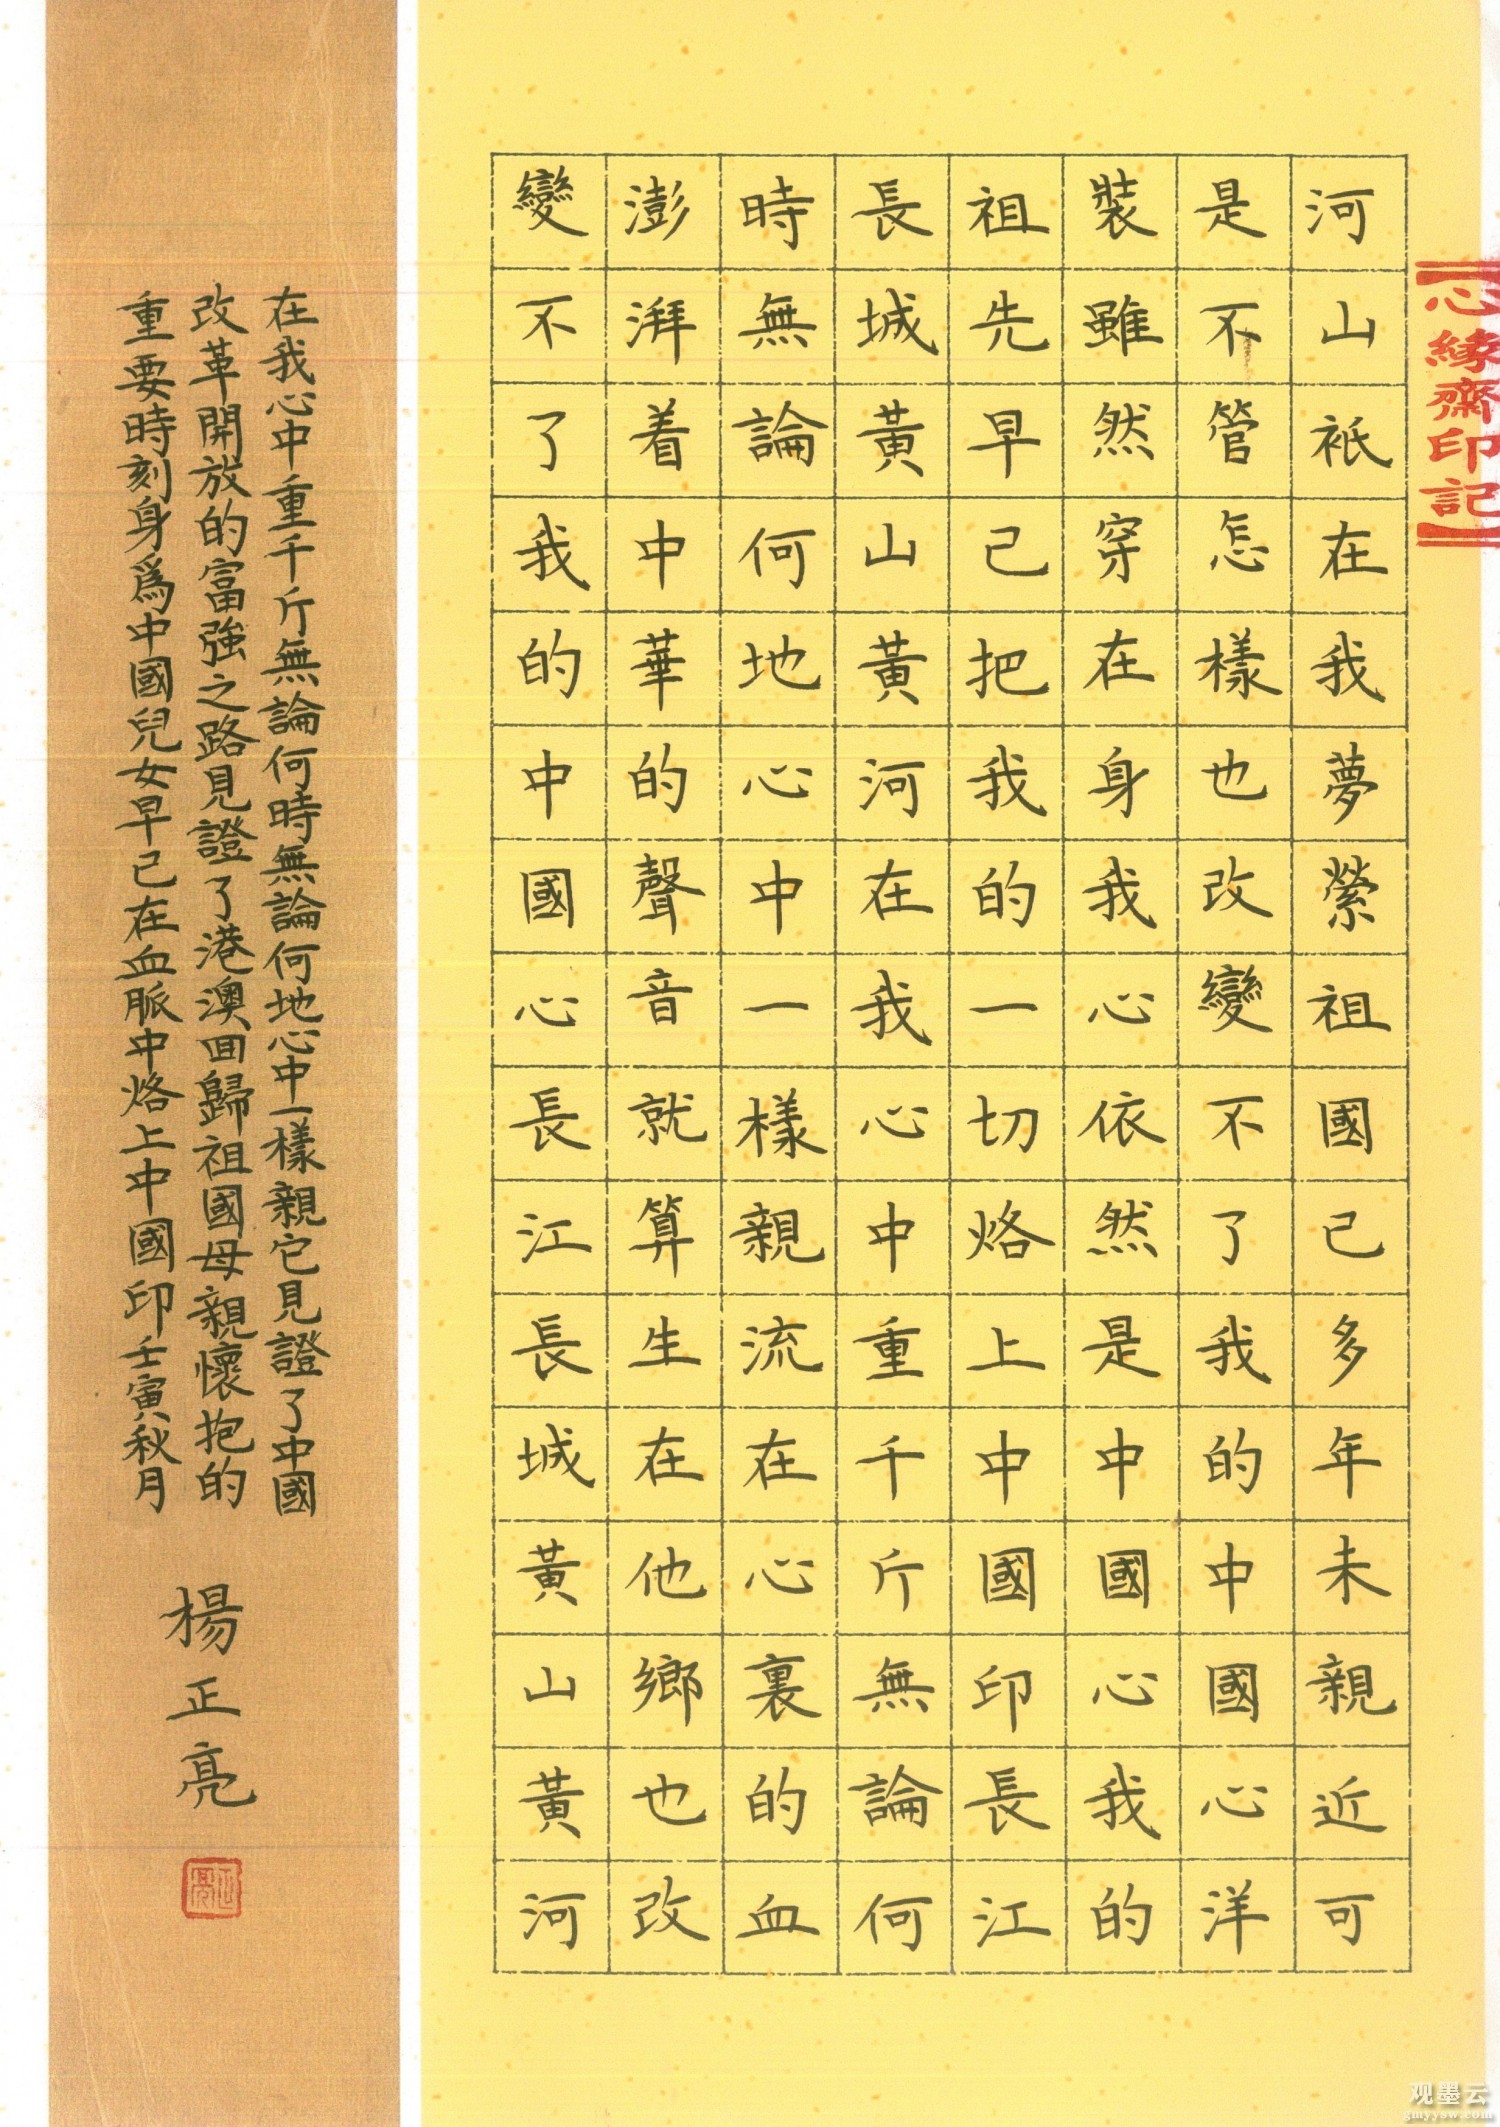 心緣齋印記
河山衹在我夢縈祖國已多年未親近可
是不管怎樣也改變不了我的中國心洋
裝雖然穿在身我心依然是中國心我的
祖先早已把我的一切烙上中國印長江
長城黃山黃河在我心中重千斤無論何
時無論何地心中一樣親流在心裏的血
澎湃着中華的聲音就算生在他鄉也改
變不了我的中國心長江長城黃山黃河
在我心中重千斤無論何時無論何地心中一樣親它見證了中國
改革開放的富強之路見證了港澳回歸祖國母親懷抱的
重要時刻身爲中國兒女早已在血脈中烙上中國印壬寅秋月
楊正亮
正亮
观墨云
gmyysw.com